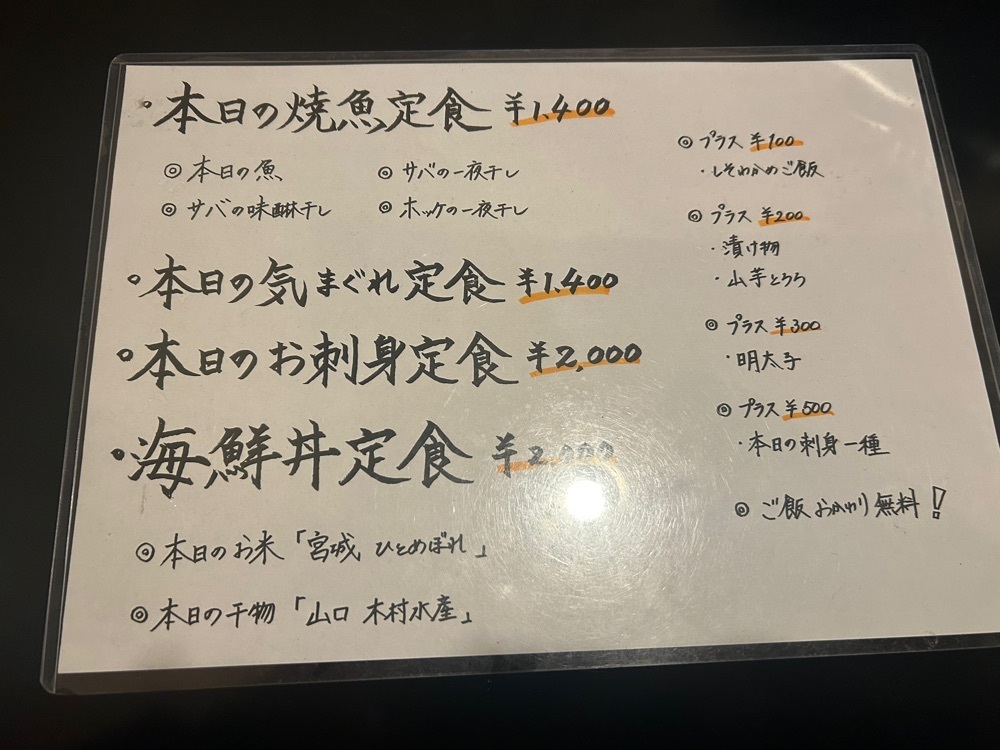 ・本日の焼魚定食 ¥1,400
◎ 本日の魚 ◎ サバの一夜干し
◎ サバの味醂干し ◎ ホッケの一夜干し
・本日の気まぐれ定食 ¥1,400
・本日のお刺身定食 ¥2,000
・海鮮丼定食 ¥2,000
◎ 本日のお米「宮城 ひとめぼれ」
◎ 本日の干物「山口 木村水産」
◎ プラス ¥100
・しそわかめご飯
◎ プラス ¥200
・漬け物
・山芋とろろ
◎ プラス ¥300
・明太子
◎ プラス ¥500
・本日の刺身一種
◎ ご飯おかわり無料!